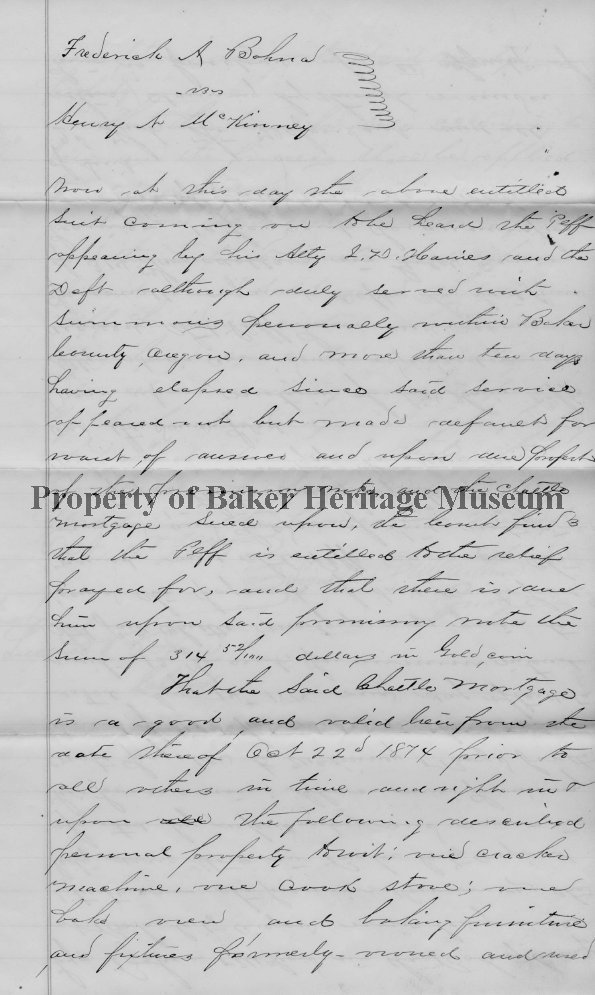 Frederick A Bohna
vs
Henry A McKinney
Now at this day the above entitled
suit coming on to be heard the Plff
appearing by his Atty I. D. Haines and the
Deft although duly served with
summons personally within Baker
County Oregon, and more than ten days
having elapsed since said service
appeared not but made default for
want of answer and upon due proofs
of the promissory note and the chattle
Property of Baker Heritage Museum
mortgage sued upon, the Court finds
that the Plff is entitled to the relief
prayed for, and that there is due
him upon said promissory note the
sum of 314 52/100 dollars in Gold coin
That the said Chattle Mortgage
is a good and valid lien from the
date thereof Oct 22d 1874 prior to
all others in time and right in &
upon all the following described
personal property towit; one cracker
machine, one Cook stove; one
bake oven and baking furniture
and fixtures formerly owned and used